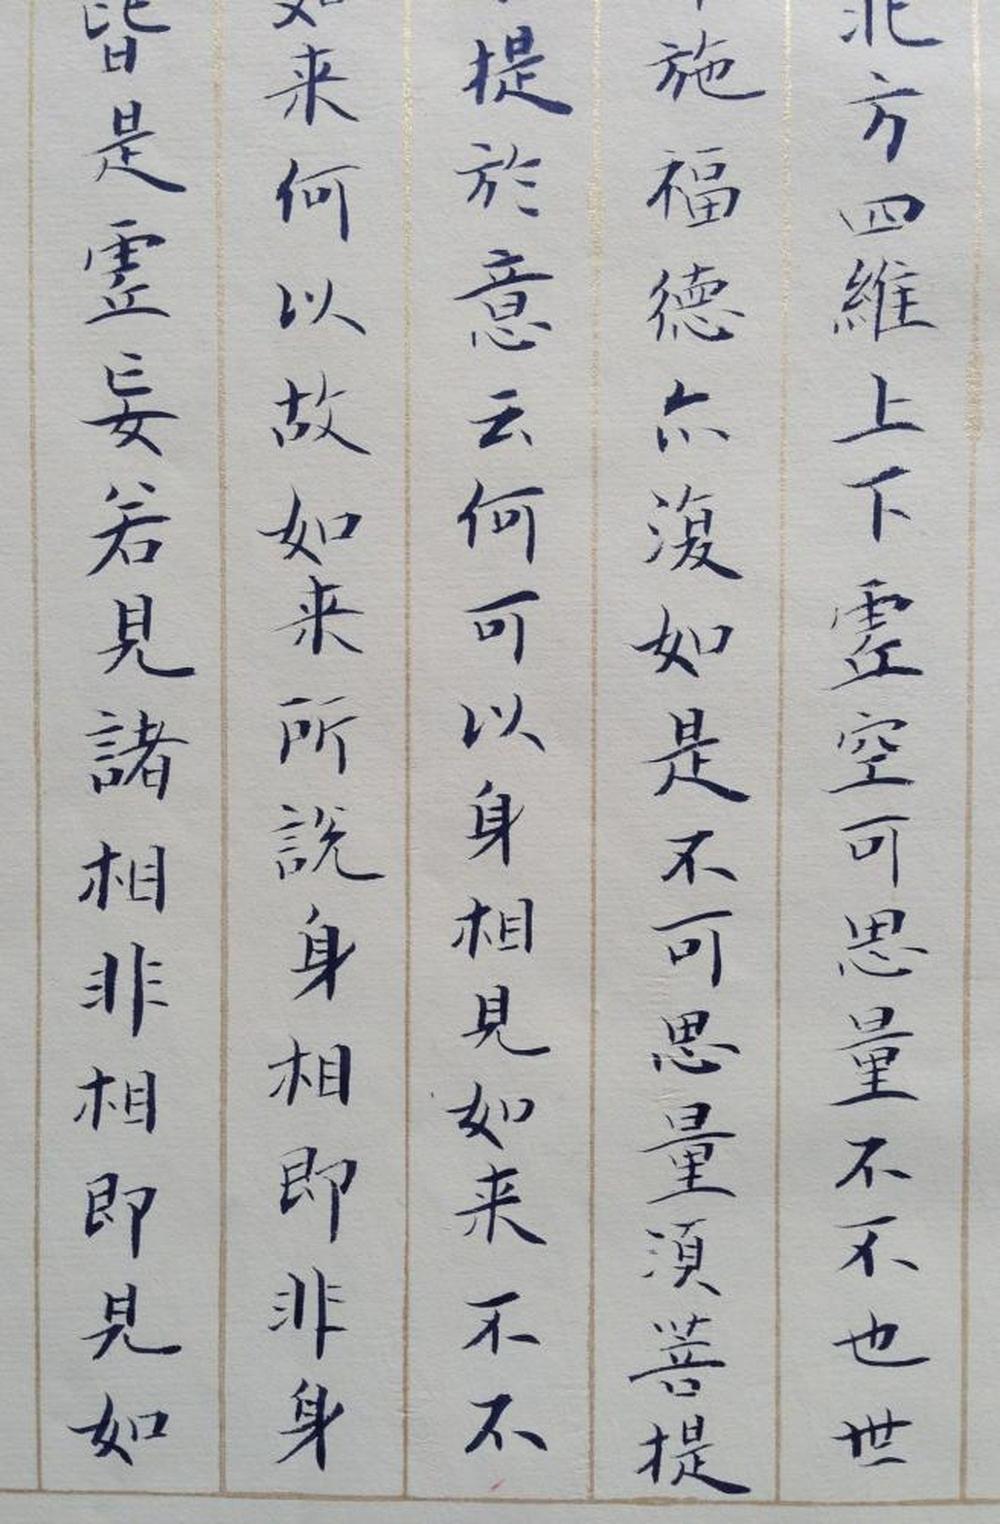 北方四維上下虛空可思量不不也世
施福德亦復如是不可思量須菩提
提於意云何可以身相見如来不不
如来何以故如来所說身相即非身
皆是虛妄若見諸相非相即見如